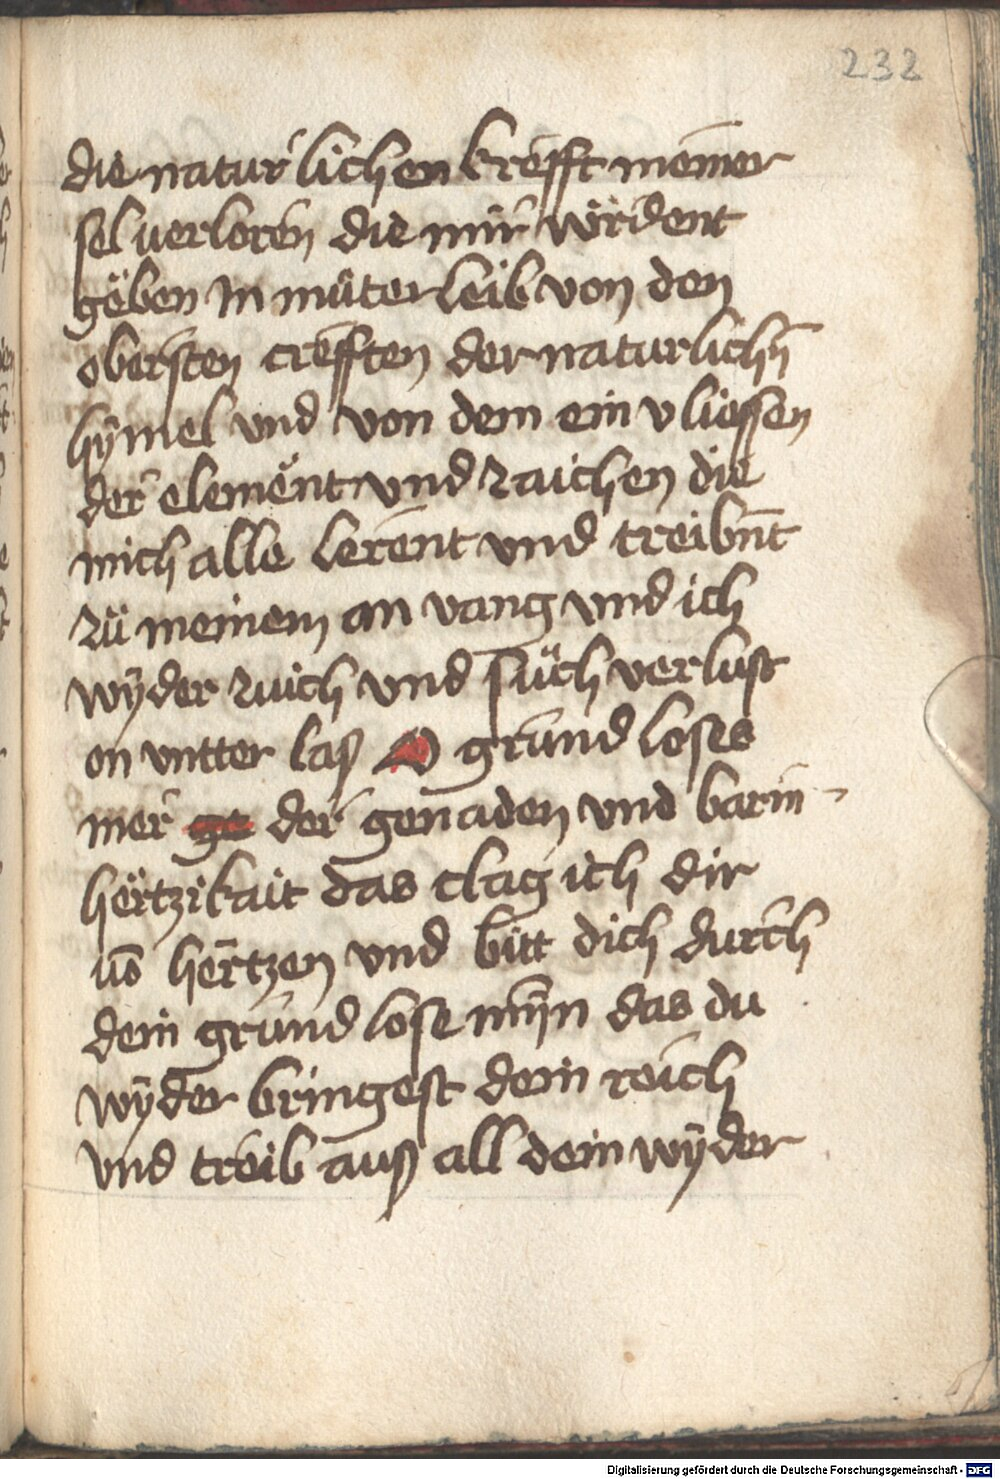 232
die natur lichen krefft meiner
sel uerloren die mir wördent
gëben In můter leib von den
obersten crefften der naturlichñ
hÿmel vnd von dem ein vliessen
der element vnd zaichen die
mich alle lerent vnd treibñt
zů meinem an vang vnd ich
wÿder zuich vnd sůch verlust
on vntter laß O grund loses
mer ge der genaden vnd barm
hërtzikait das clag ich dir
vō hertzen vnd bitt dich durch
dein grund lose mÿn das du
wÿder bringest dein reich
vnd treib auß all dein wÿder
Digitalisierung gefördert durch die Deutsche Forschungsgemeinschaft - DFG